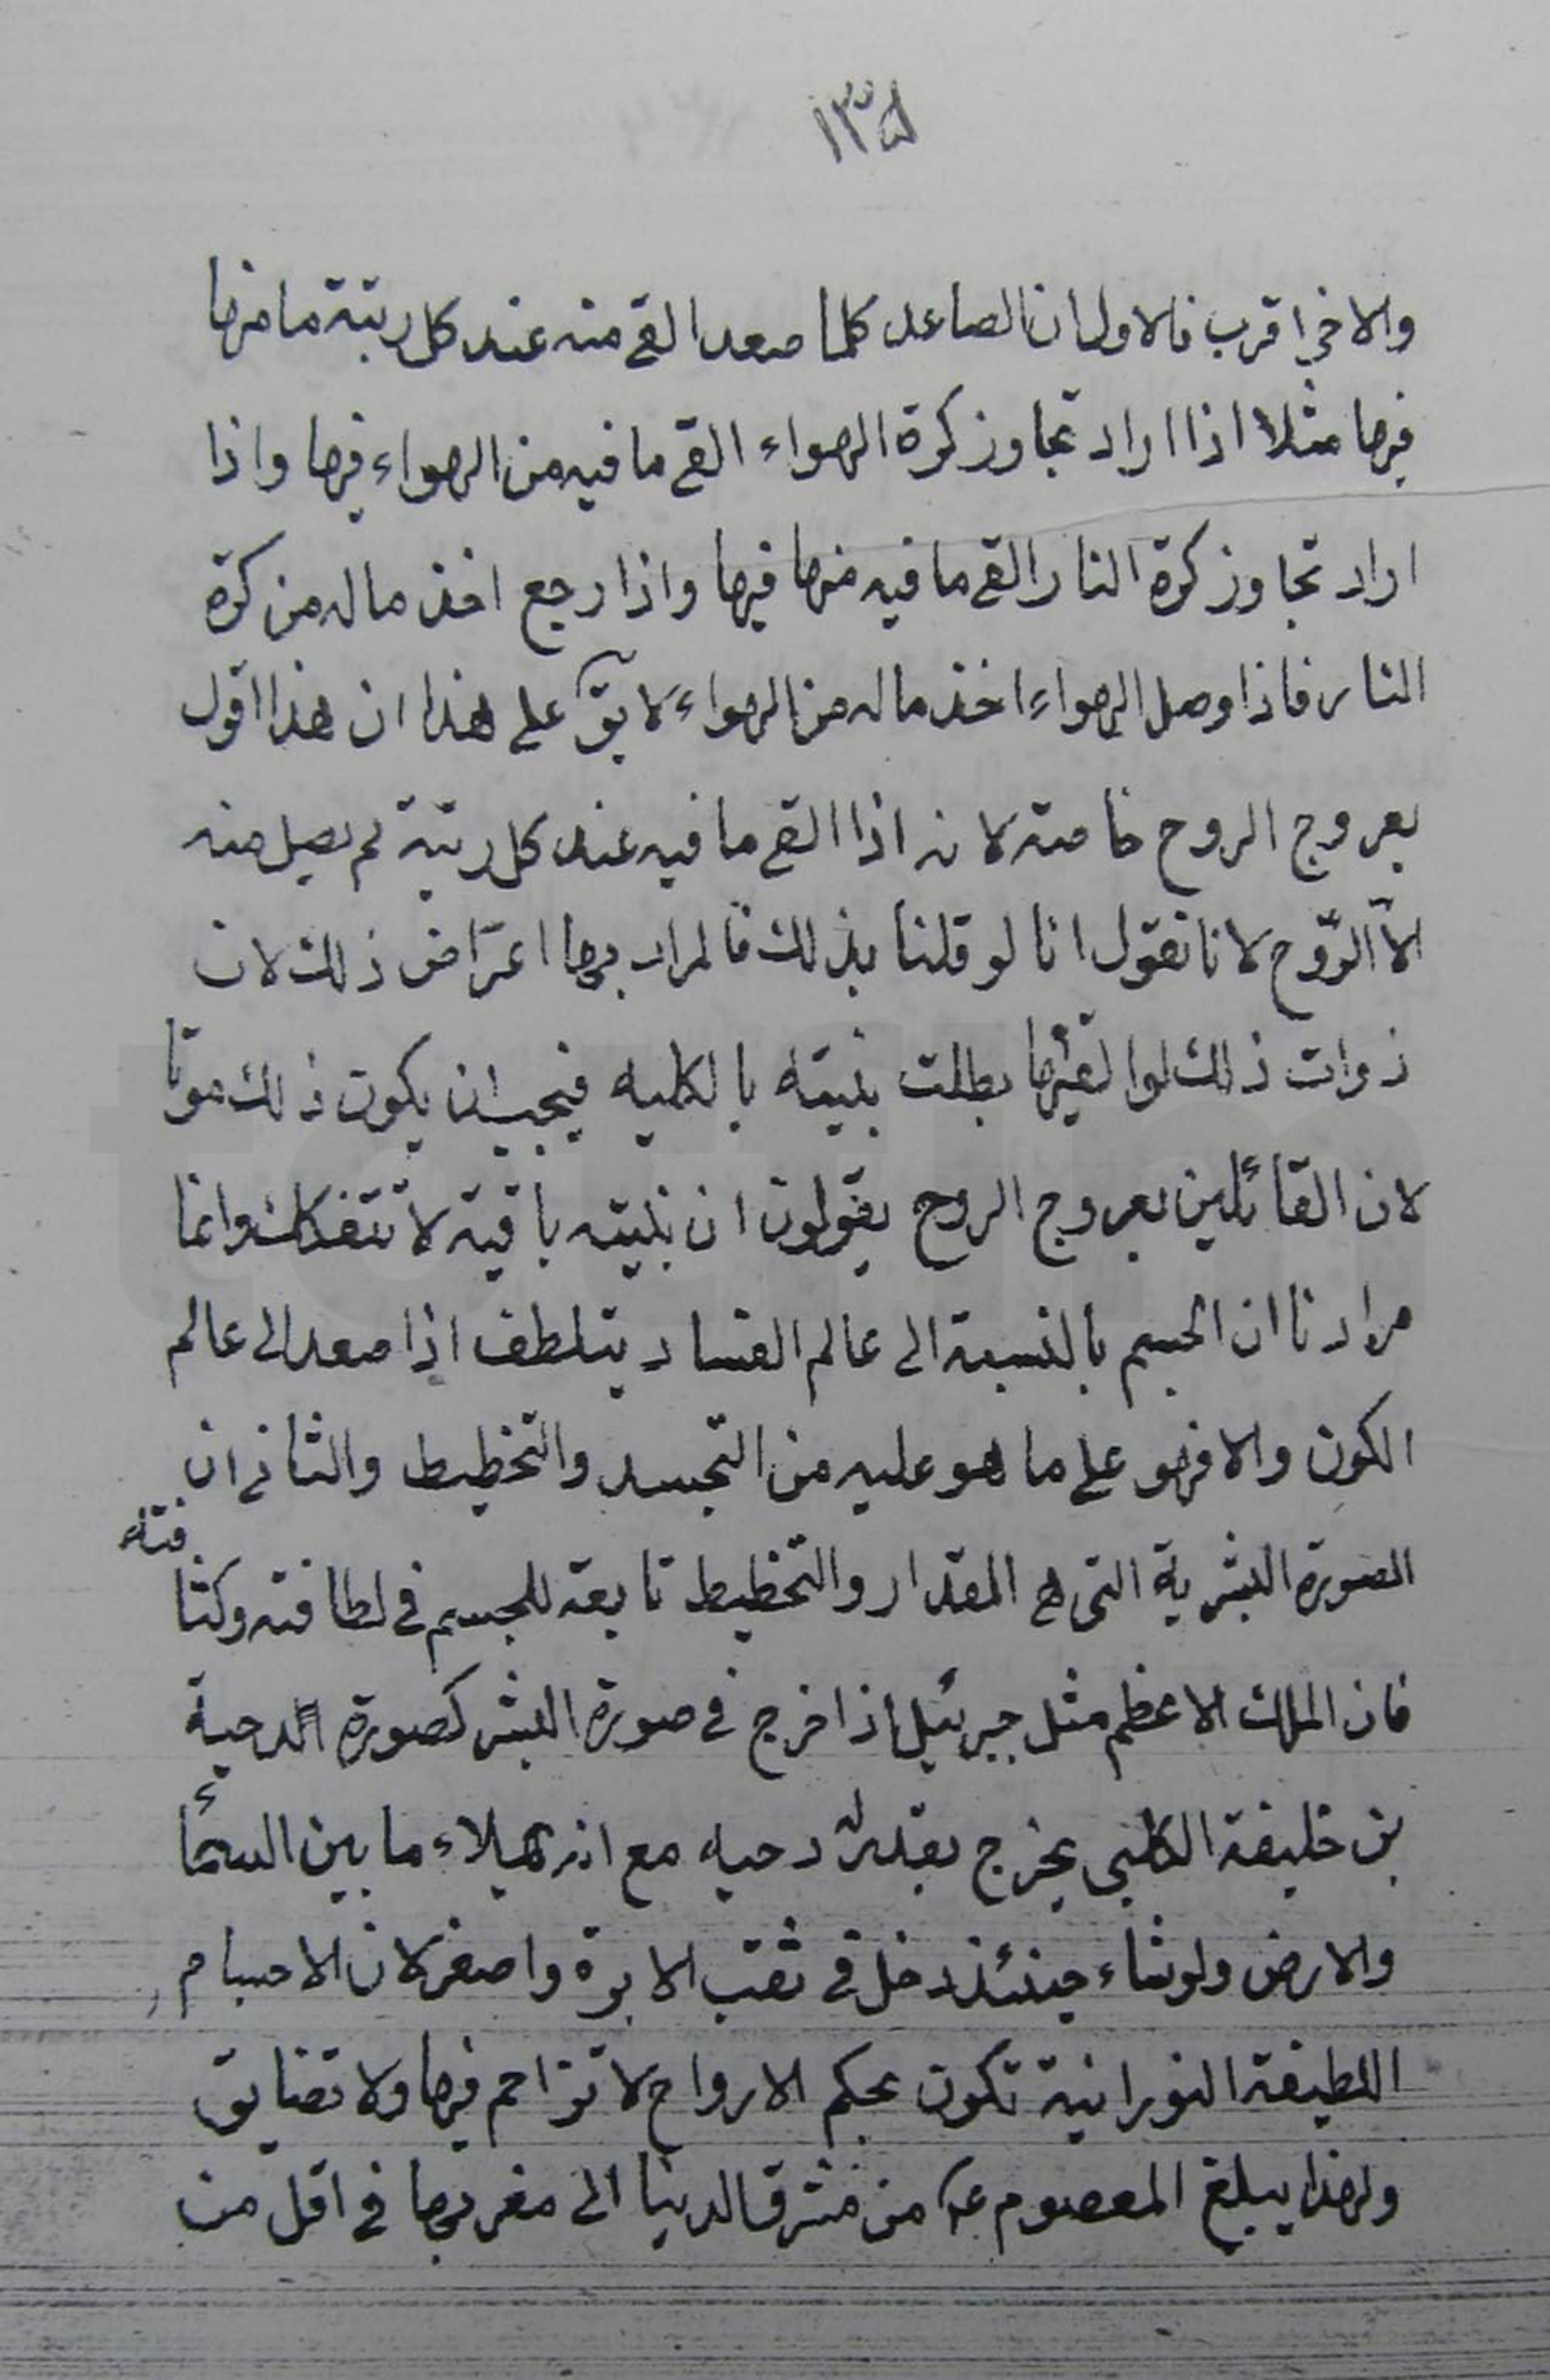 ١٣٥
والاخر اقرب فالاول ان الصاعد كلما صعد القى منه عند كل رتبة ما منها
فيها مثلا اذا اراد تجاوز كرة الهواء القى ما فيه من الهواء فيها واذا
اراد تجاوز كرة النار القى ما فيه منها فيها واذا رجع اخذ ماله من كرة
النار فاذا وصل الهواء اخذ ماله من الهواء لا يق على هذا ان هذا اقول
بعروج الروح خاصة لانه اذا القى ما فيه عند كل رتبة لم يصل منه
الّا الرّوح لانا نقول انا لو قلنا بذلك فالمراد بها اعراض ذلك لان
ذوات ذلك لو القيها بطلت بنيته بالكليه فيجب ان يكون ذلك موتا
لان القائلين بعروج الروح يقولون ان بنيته باقية لا تتفكك وانما
مرادنا ان الجسم بالنسبة الى عالم الفساد يتلطف اذا صعد الى عالم
الكون والا فهو على ما هو عليه من التجسد والتخطيط والثانى ان
الصورة البشرية التى هى المقدار والتخطيط تابعة للجسم فى لطافته وكثافته
فان الملك الاعظم مثل جبرئيل اذا خرج فى صورة البشر كصورة الدحية
بن خليفة الكلبى يخرج بقدر دحيه مع انه يملاء ما بين السماء
والارض ولو شاء حينئذ دخل فى ثقب الابرة واصغر لان الاجسام
اللطيفة النورانية تكون بحكم الارواح لا تزاحم فيها ولا تضايق
ولهذا يبلغ المعصوم ع من مشرق الدنيا الى مغربها فى اقل من